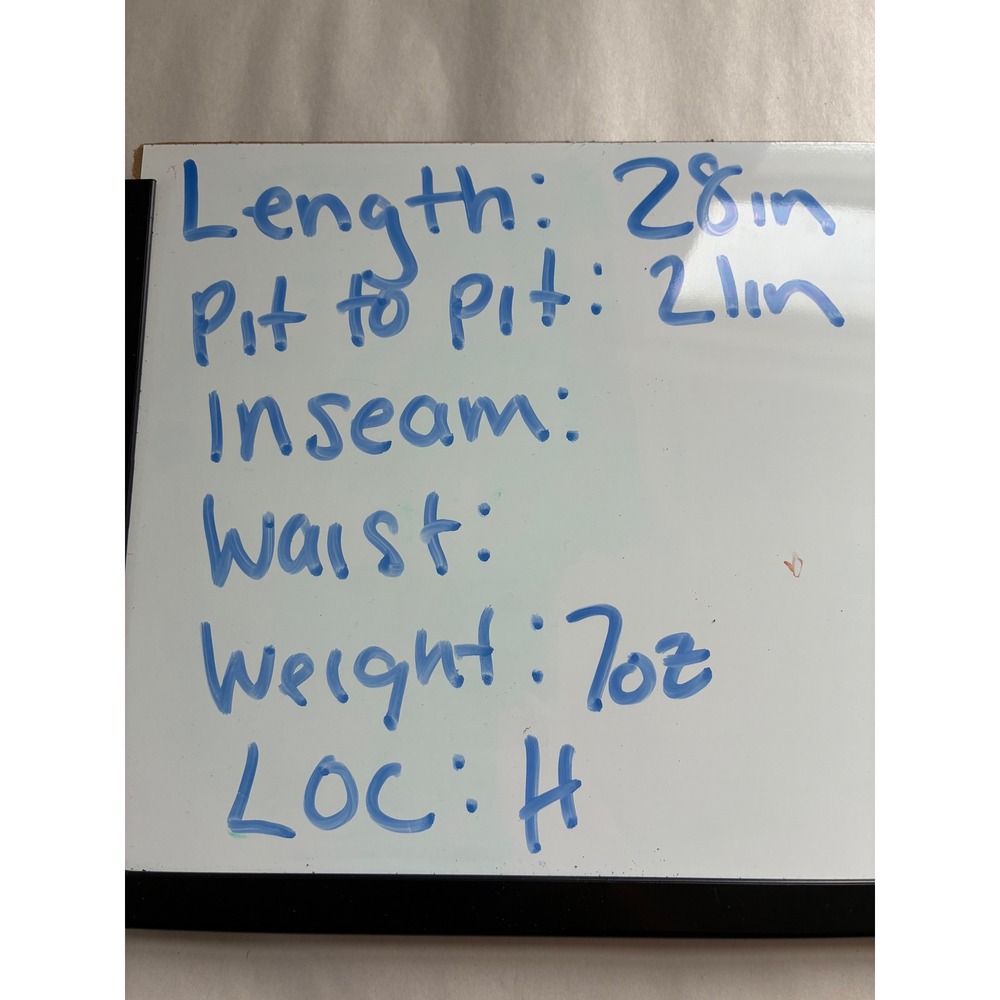 Length: 28in
Pit to pit: 21in
Inseam:
Waist:
Weight: 7oz
LOC: H